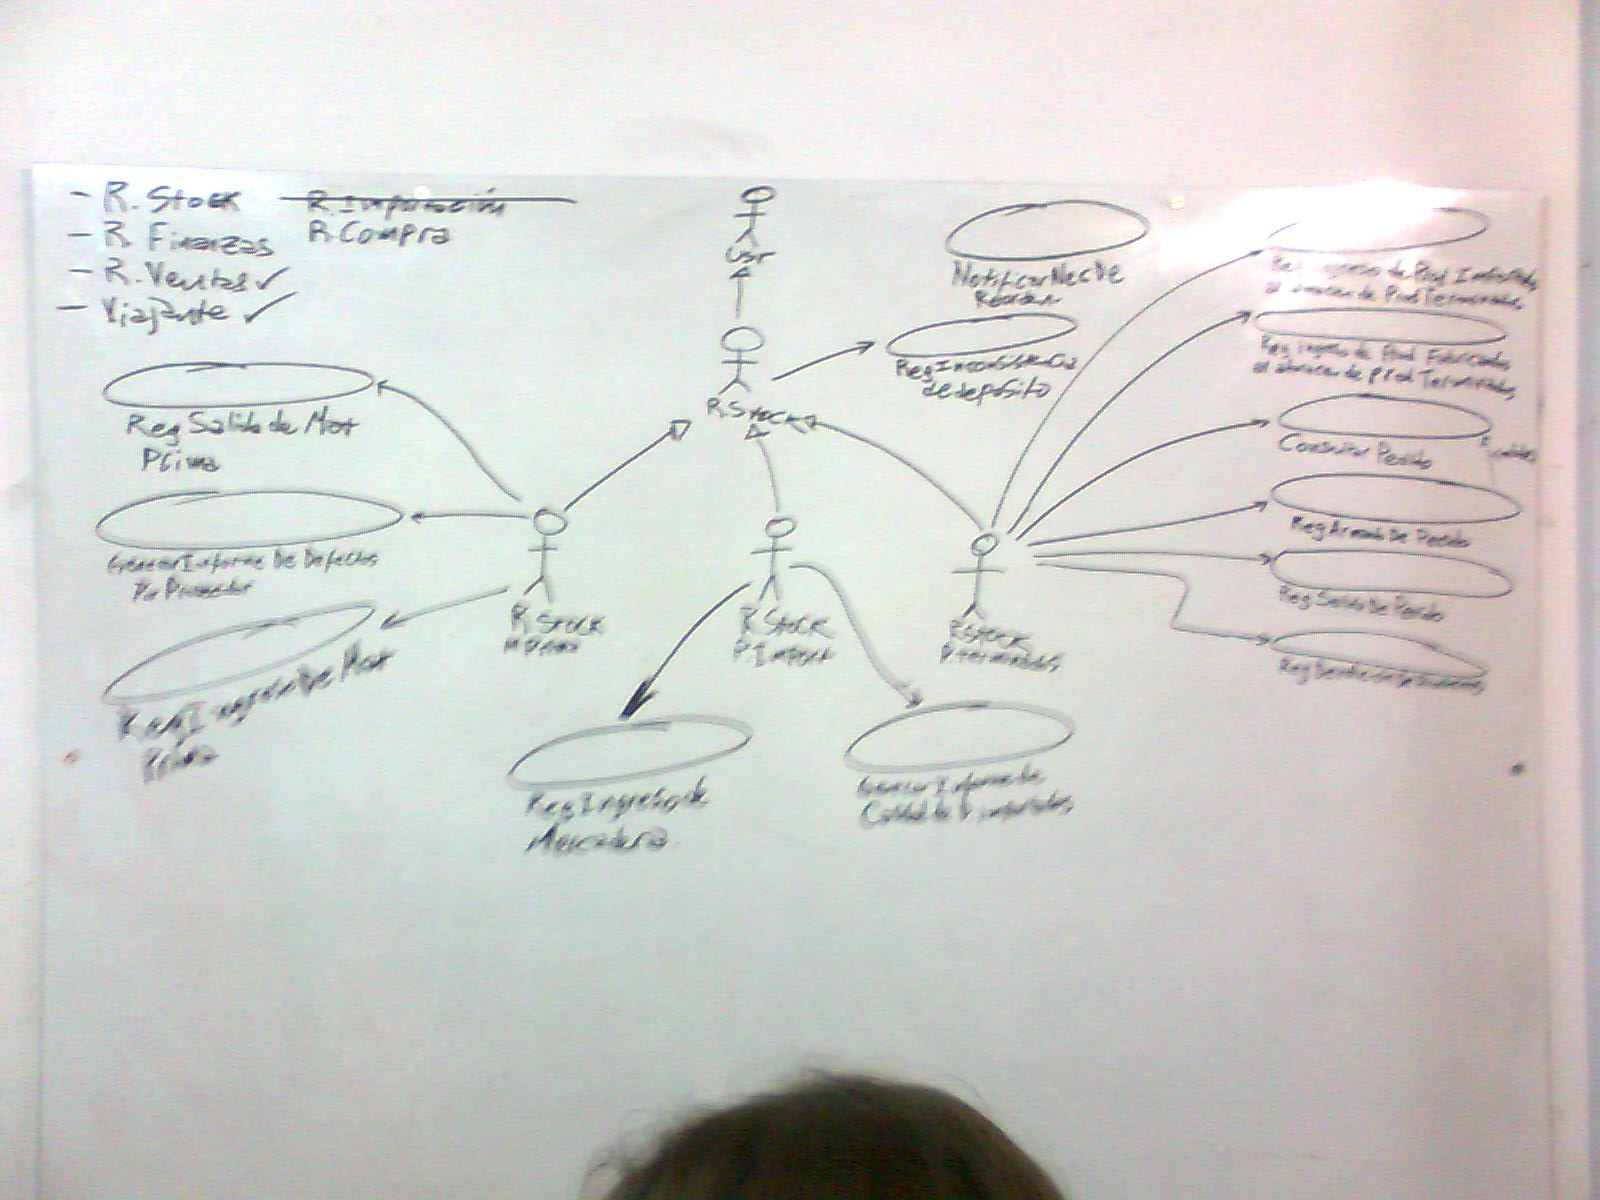 - R. Stock
R. Importación
- R Finanzas
R. Compra
- R. Ventas ✓
- Viajante ✓
Usr
R Stock
Notificar Nec De
Reg Inconsistencia
de deposito
Reg Salida de Mat
Prima
Generar Informe De Defectos
Por Proveedor
Reg Ingreso De Mat
Prima
R. Stock
M Prima
R Stock
P. Import
R Stock
P. terminados
Reg Ingreso de
Mercaderia
Generar Informe de
Calidad de P importados
Reg Ingreso de Prod Importados
al almacen de Prod Terminados
Reg ingreso de Prod Fabricados
al almacen de prod Terminados
Consultar Pedido
Reg Armado De Pedido
Reg Salida De Pedido
Reg